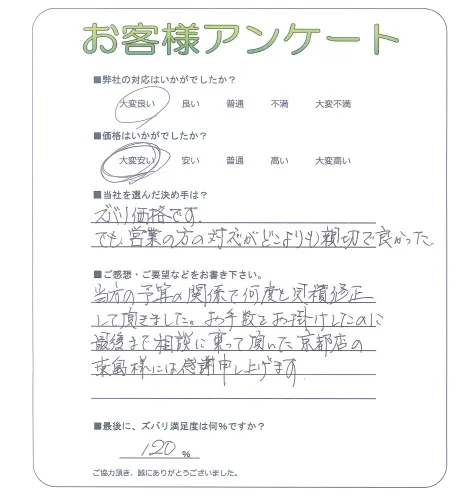 お客様アンケート
■弊社の対応はいかがでしたか？
大変良い 良い 普通 不満 大変不満
■価格はいかがでしたか？
大変安い 安い 普通 高い 大変高い
■当社を選んだ決め手は？
ズバリ価格です。
でも、営業の方の対応がどこよりも親切で良かった
■ご感想・ご要望などをお書き下さい。
当方の予算の関係で何度も見積修正
して頂きました。お手数をお掛けしたのに
最後まで相談に乗って頂いた京都店の
様には感謝申し上げます
■最後に、ズバリ満足度は何%ですか？
120 %
ご協力頂き、誠にありがとうございました。